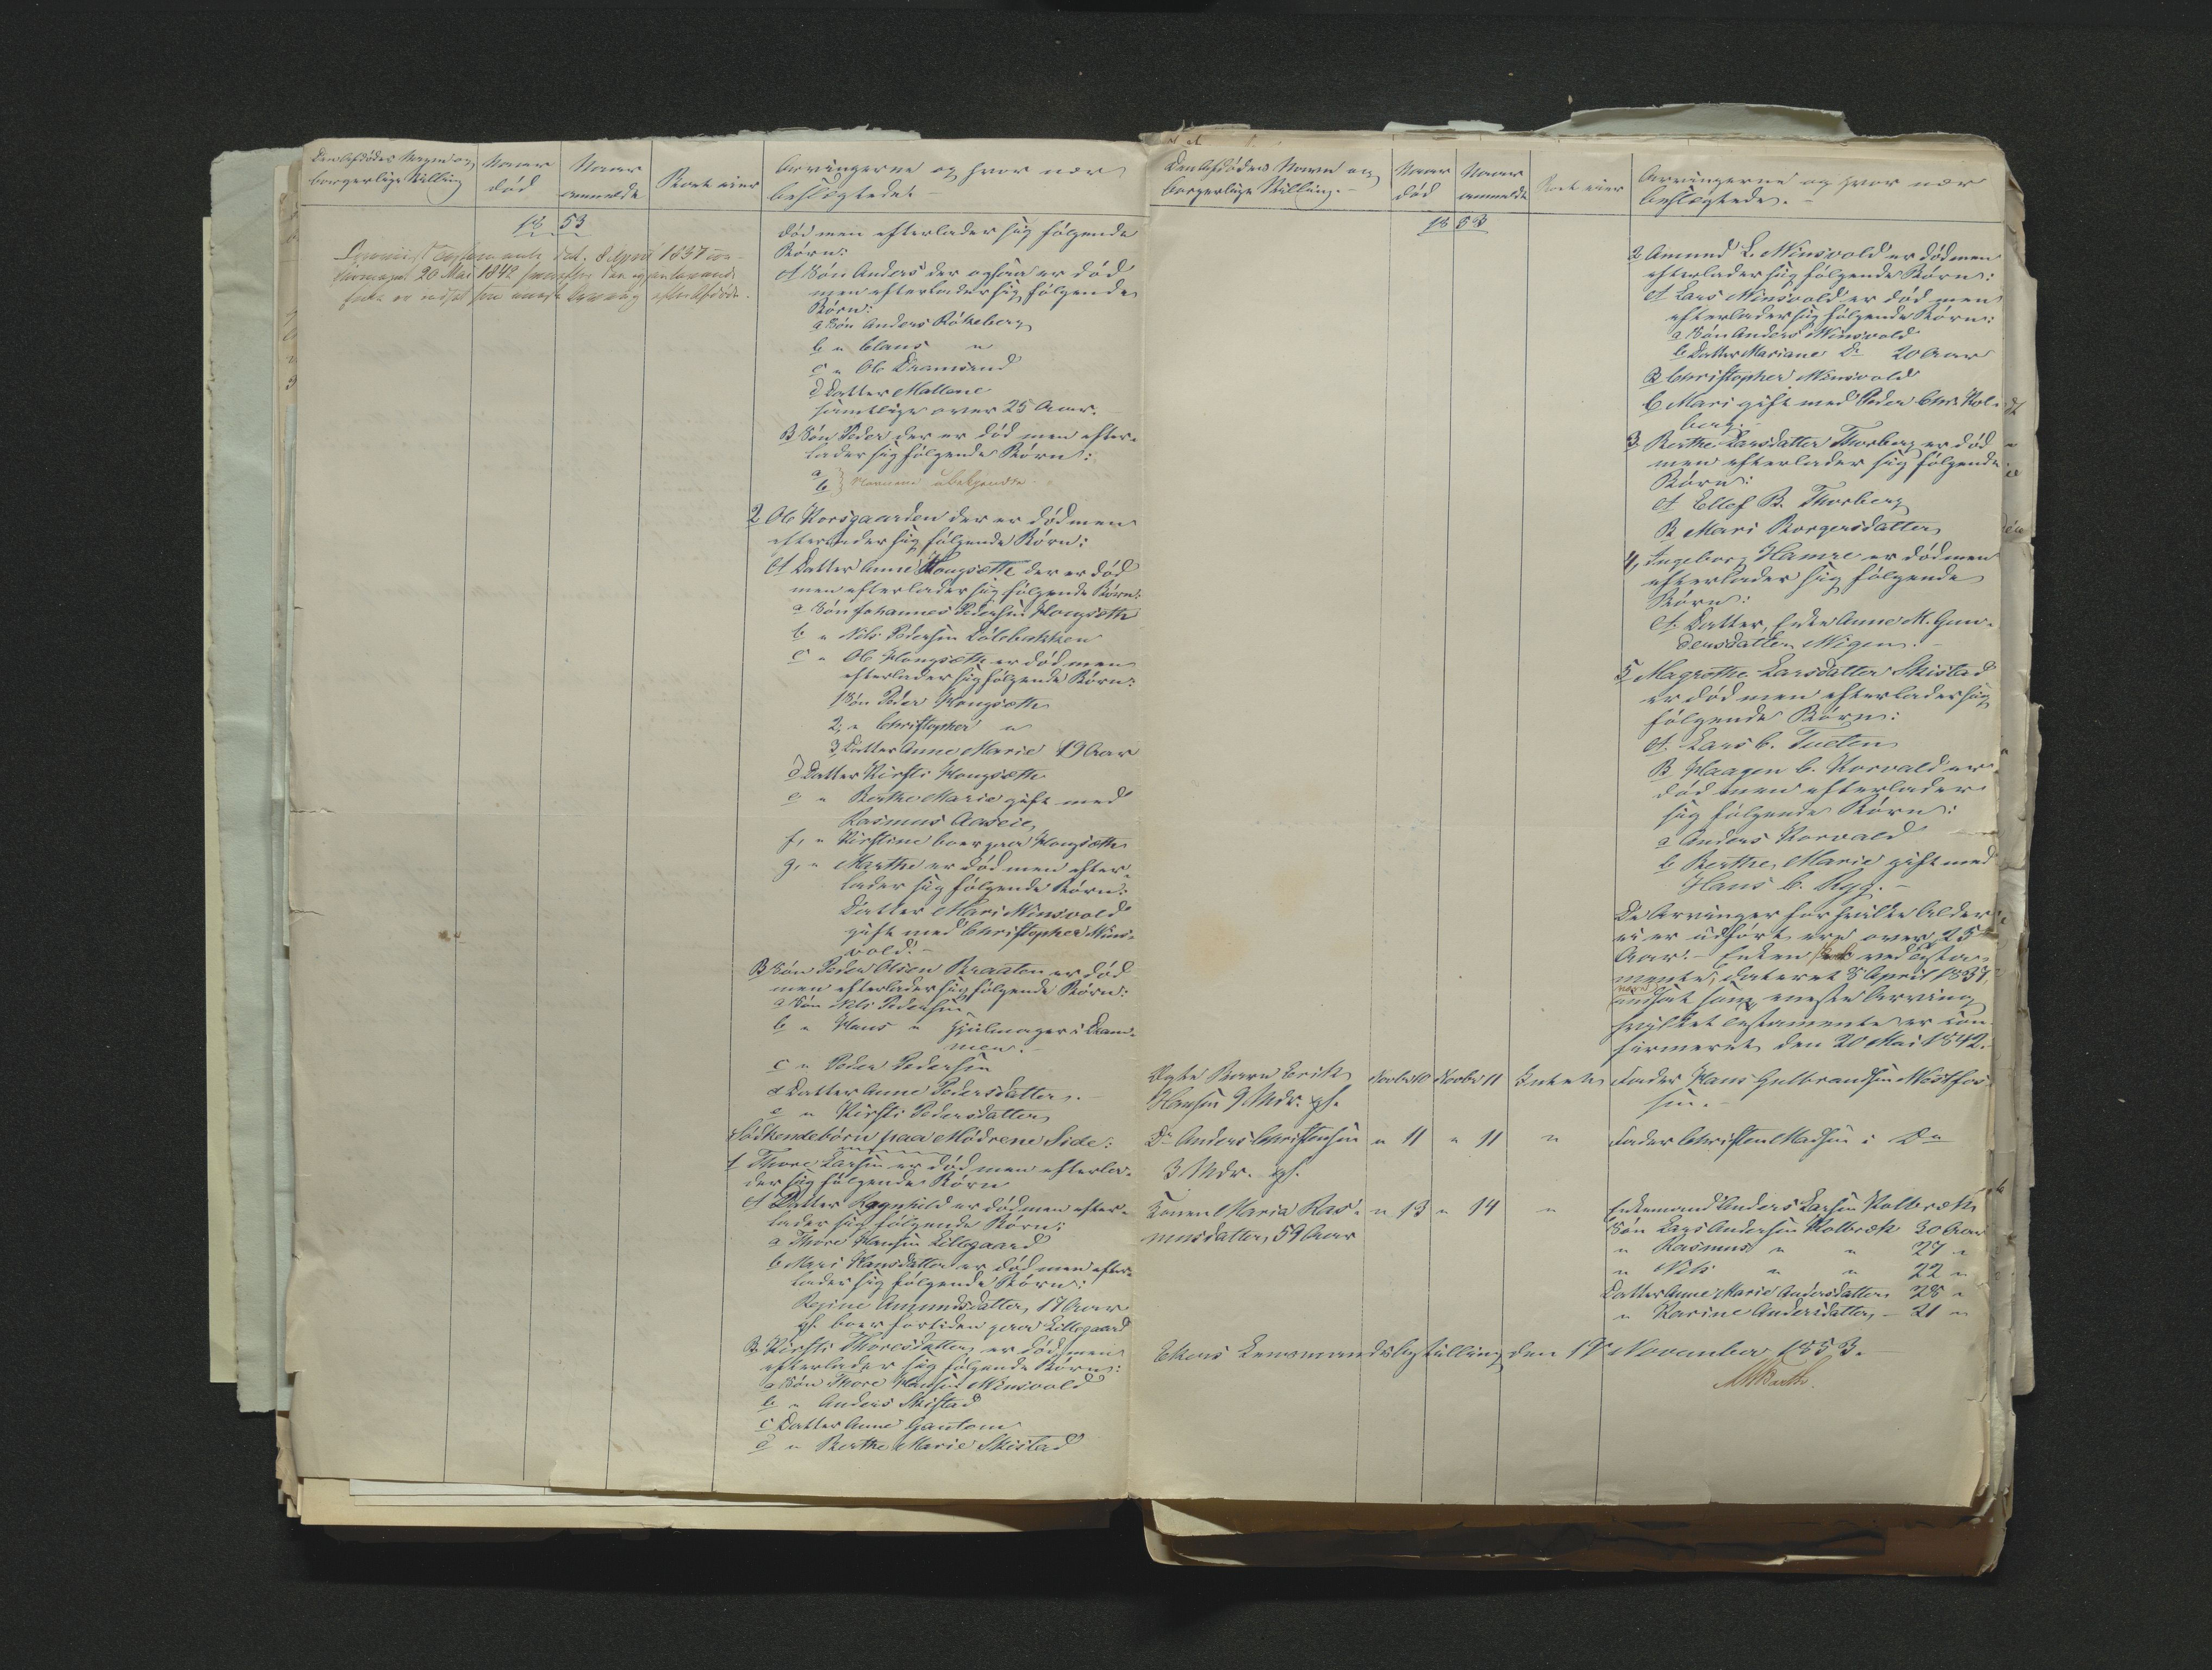 Den Afdødes Navn og
borgerlige Stilling
Naar
død
Naar
anmeldt
Arvingerne og hvor nær
beslægtede
1853
Testam. dat. 8 April 1837 con-
firmeret 20 Mai 1842 hvorefter
Enke er indsat som eneste Arving
død men efterlader sig følgende
Børn:
A Søn Anders der ogsaa er død
men efterlader sig følgende
Børn:
a Søn Anders Røkeberg
b " Claus "
c " Ole Dramsrud
d Datter Mallene
samtlige over 25 Aar.
B Søn Peder der er død men efter-
lader sig følgende Børn:
a
b } Navnene ubekjendte
2 Ole Korsgaarden der er død men
efterlader sig følgende Børn:
A Datter Anne Hougsæth der er død
men efterlader sig følgende Børn:
a Søn Johannes Pedersen Hougsæth
b " Nils Pedersen Dølebakken
c " Ole Hougsæth er død men
efterlader sig følgende Børn:
1 Søn Peder Hougsæth
2, " Christopher "
3, Datter Anne Marie 19 Aar
d Datter Kirsti Hougsæth
e " Berthe Marie gift med
Rasmus Aaseie
f, " Kirstine boer paa Hougsæth
g, " Marthe er død men efter-
lader sig følgende Børn:
Datter Mari Minsvold
gift med Christopher Mins-
vold.
B Søn Peder Olsen Braaten er død
men efterlader sig følgende Børn:
a Søn Nils Pedersen
b " Hans " Hjulmager i Dram-
men.
c " Peder Pedersen
d Datter Anne Pedersdatter.
e " Kirsti Pedersdatter
Sødskendebørn paa Mødrene Side:
1 Thore Larsen er død men efterla-
der sig følgende Børn
A Datter Ragnhild er død men efter-
lader sig følgende Børn:
a Thore Hansen Lillegaard
b Mari Hansdatter er død men efter-
lader sig følgende Børn:
Regine Amundsdatter, 17 Aar
gl. boer fortiden paa Lillegaard
B Kirsti Thoresdatter er død men
efterlader sig følgende Børn:
a Søn Thore Hansen Minsvold
b " Anders Skistad
c Datter Anne Gantom
d " Berthe Marie Skistad
Den Afdødes Navn og
borgerlige Stilling.
Naar
død
Naar
anmeldt
Arvingerne og hvor nær
beslægtede.
1853
2 Amund L. Minsvold er død men
efterlader sig følgende Børn:
A Lars Minsvold er død men
efterlader sig følgende Børn:
a Søn Anders Minsvold
b Datter Mariane Do 20 Aar
B Christopher Minsvold
C Mari gift med Peder Chr. Kol-
berg.
3 Berthe Larsdatter Thorberg er død
men efterlader sig følgende
Børn:
A Ellef B. Thorberg
B Mari Borgersdatter
4, Ingeborg Hamre er død men
efterlader sig følgende
Børn:
A. Datter, Enke Anne M. Gun-
dersdatter Migen.
5 Magrethe Larsdatter Skistad
er død men efterlader sig
følgende Børn:
A. Lars C. Tueten
B Haagen C. Korvald er
død men efterlader
sig følgende Børn:
a Anders Korvald
b Berthe Marie gift med
Hans C. Ryg.
De Arvinger for hvilke Alder
ei er udført ere over 25
Aar. Enken ved Testa-
mente, dateret 8 April 1837,
indsat som eneste Arving
hvilket Testamente er con-
firmeret den 20 Mai 1842.
Ægte Barn Erik
Hansen 9 Mdr. gl.
Novbr 10 Novbr 11 Intet
Fader Hans Gulbrandsen Vestfos-
sen.
Do Anders Christensen " 11 " 11 "
3 Mdr. gl.
Fader Christen Madsen i Do
Konen Maria Ras- " 13 " 14 "
musdatter, 59 Aar
Enkemand Anders Larsen Kolbræk
Søn Lars Andersen Kolbræk 30 Aar
" Rasmus " " 27 "
" Nils " " 22 "
Datter Anne Marie Andersdatter 28 "
" Karine Andersdatter, 21 "
Ekers Lensmandsbestilling den 17 November 1853.